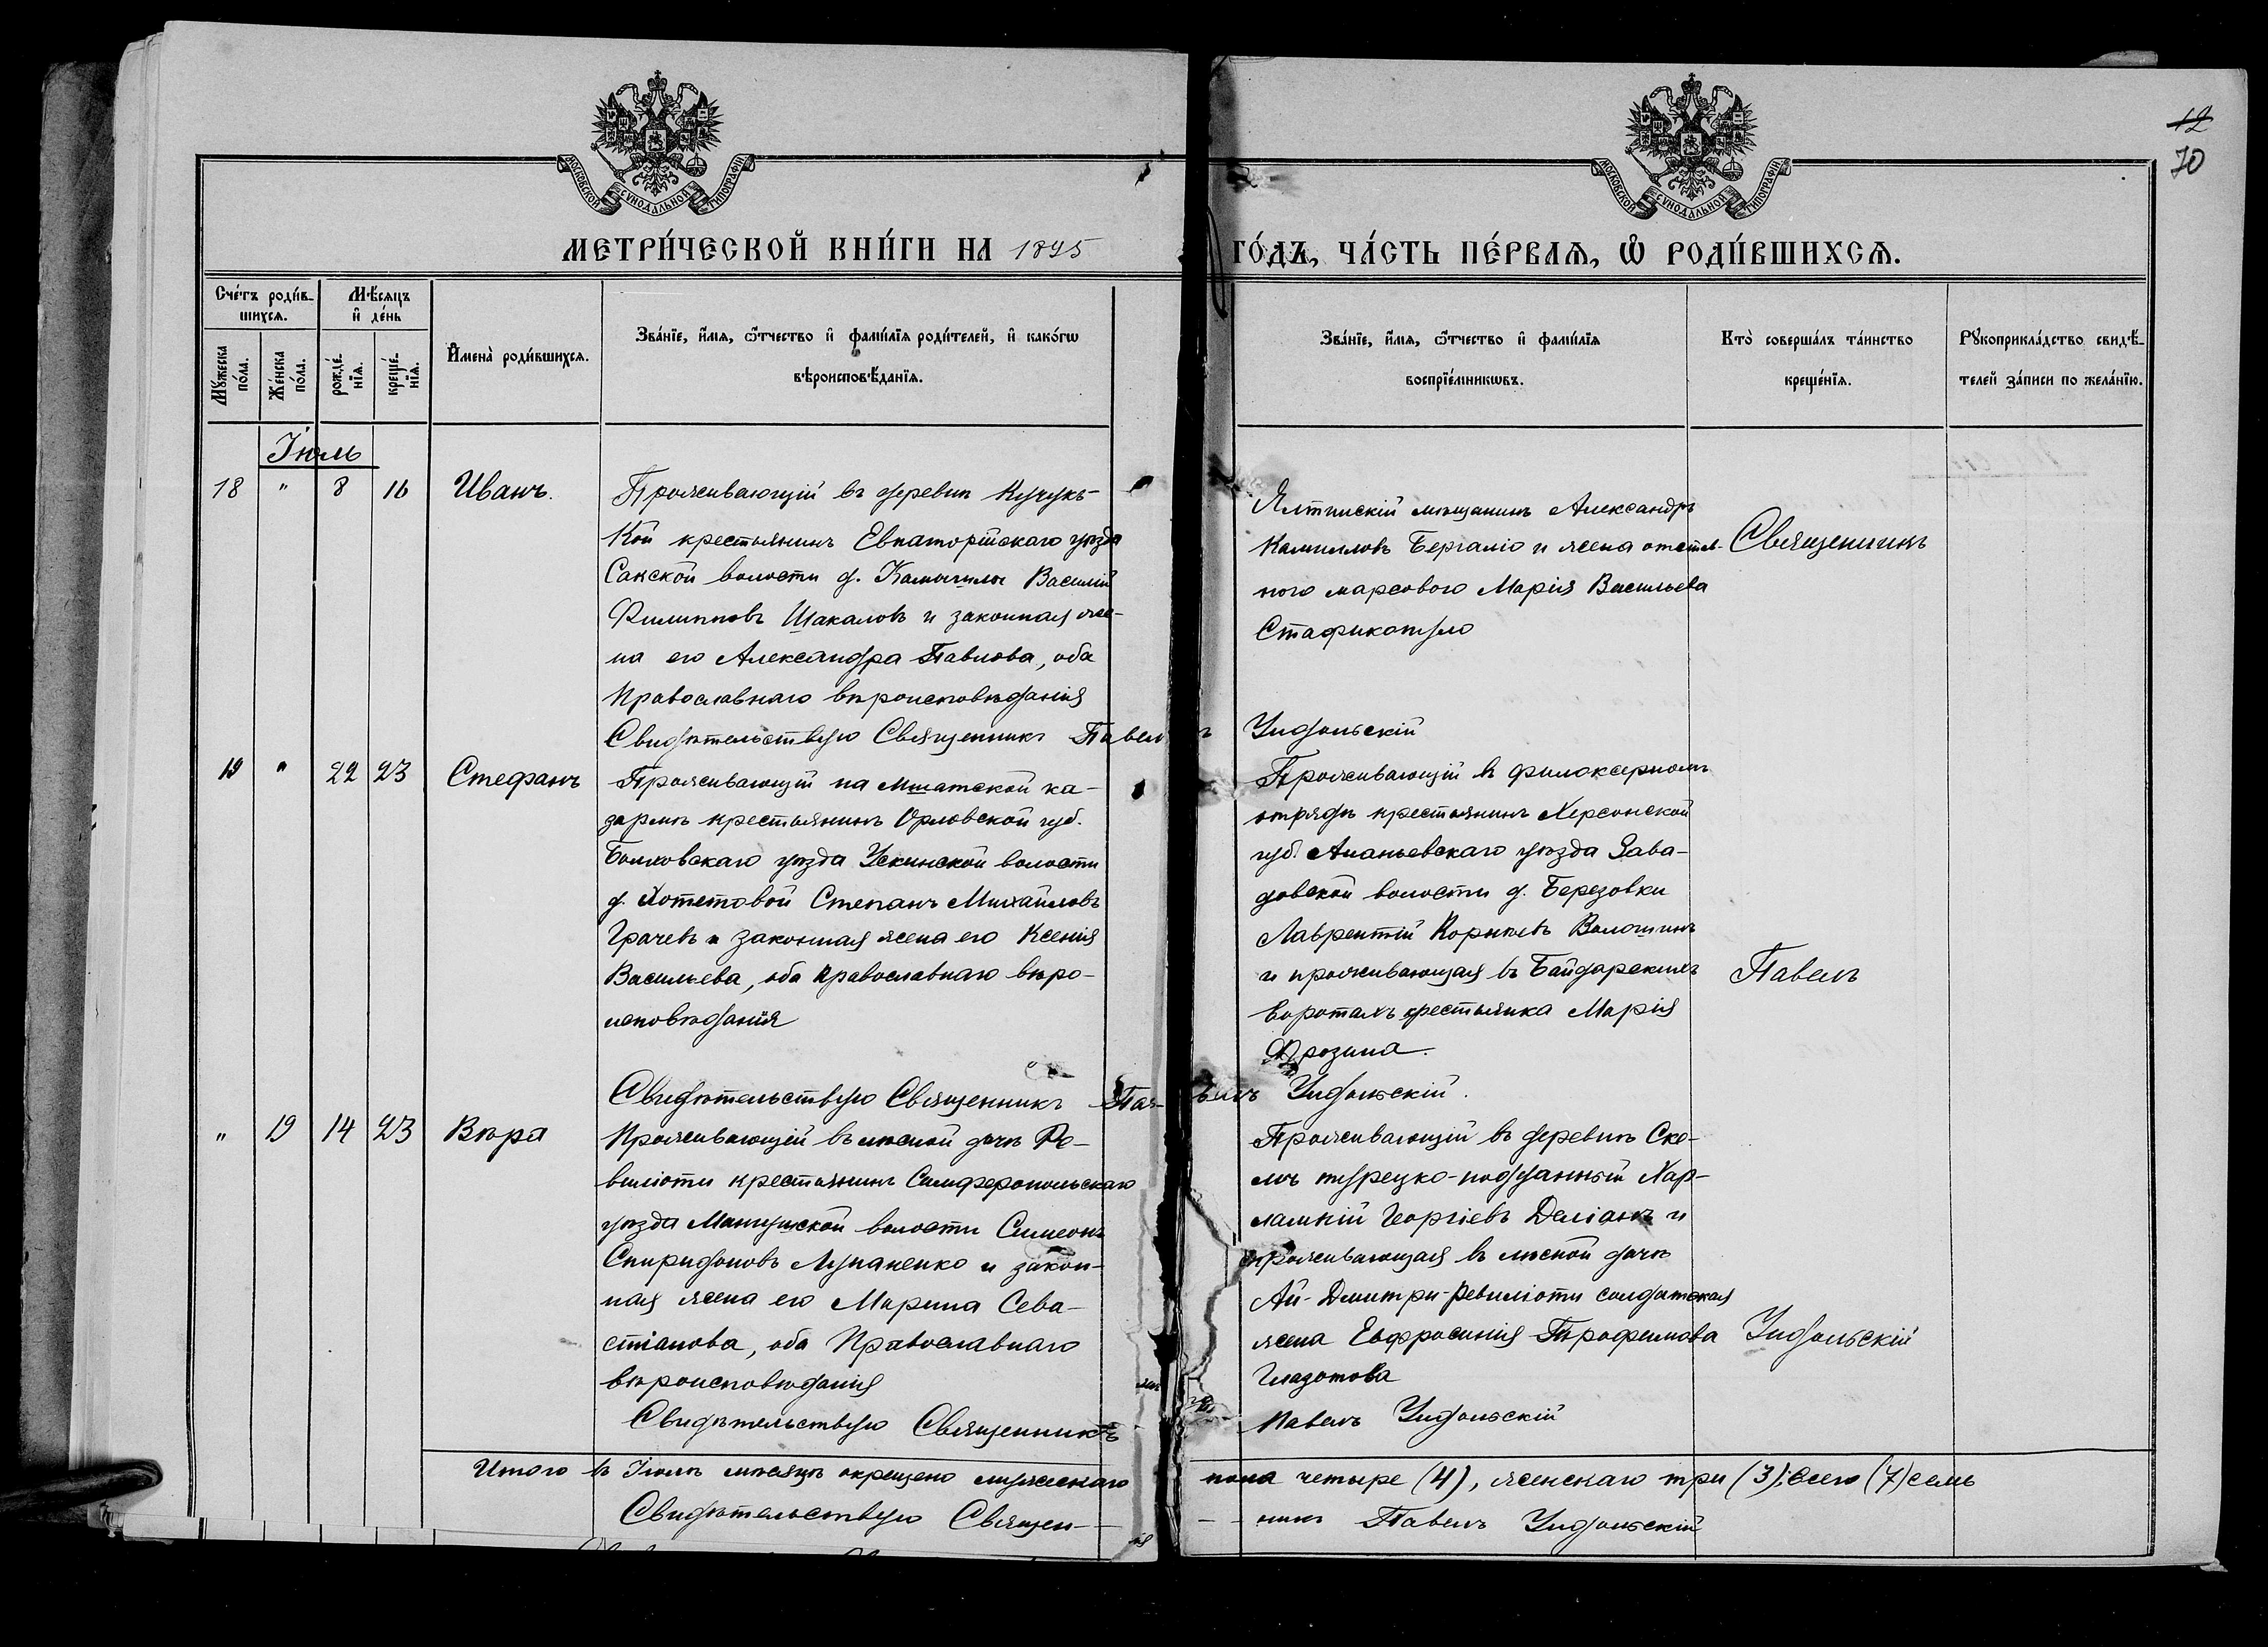 12
70
МОСКОВСКОЙ СѴНОДАЛЬНОЙ ТИПОГРАФІИ
МОСКОВСКОЙ СѴНОДАЛЬНОЙ ТИПОГРАФІИ
МЕТРИ́ЧЕСКОЙ КНИ́ГИ НА 1895
ГО́ДЪ, ЧА́СТЬ ПЕ́РВАѦ, Ѽ РОДИ́ВШИХСѦ.
Сче́тъ роди́в-
шихсѧ.
Мѣ́сѧцъ
и҆ де́нь
Мꙋ́жеска
по́ла.
Же́нска
по́ла.
рожде́-
нїѧ.
креще́-
нїѧ.
И҆мена̀ роди́вшихсѧ.
Зва́нїе, и҆́мѧ, ѻ҆́тчество и҆ фами́лїѧ роди́телей, и҆ како́гѡ
вѣроисповѣ́данїѧ.
Зва́нїе, и҆́мѧ, ѻ҆́тчество и҆ фами́лїѧ
воспрїе́мникѡвъ.
Кто̀ соверша́лъ та́инство
креще́нїѧ.
Рꙋкоприкла́дство свидѣ́-
телей за́писи по жела́нїю.
Іюль
18 " 8 16 Иванъ.
Проживающій въ деревнѣ Кучукъ-
Кой крестьянинъ Евпаторійскаго уѣзда
Сакской волости д. Камышлы Василій
Филипповъ Шакаловъ и законная же-
на его Александра Павлова, оба
Православнаго вѣроисповѣданія
Ялтинскій мѣщанинъ Александръ
Камилловъ Бергаліо и жена отстав-
ного марсового Марія Васильева
Стафикопуло
Священникъ
Свидѣтельствую Священникъ Павелъ Ундольскій
19 " 22 23 Стефанъ
Проживающій на Мшатской ка-
зармѣ крестьянинъ Орловской губ.
Болховскаго уѣзда Ускинской волости
д. Хотетовой Степанъ Михайловъ
Грачевъ и законная жена его Ксенія
Васильева, оба православнаго вѣро-
исповѣданія
Проживающій въ филоксерномъ
отрядѣ крестьянинъ Херсонской
губ. Ананьевскаго уѣзда Зава-
довской волости д. Березовки
Лаврентій Корнѣевъ Волошинъ
и проживающая въ Байдарскихъ
воротахъ крестьянка Марія
Фрозина.
Павелъ
Свидѣтельствую Священникъ Павелъ Ундольскій.
" 19 14 23 Вѣра
Проживающій въ лѣсной дачѣ Ре-
виліоти крестьянинъ Симферопольскаго
уѣзда Мангушской волости Симеонъ
Спиридоновъ Лупаненко и закон-
ная жена его Марина Сева-
стіанова, оба Православнаго
вѣроисповѣданія
Проживающій въ деревнѣ Ске-
лѣ турецко-подданный Хар-
лампій Георгіевъ Деліанъ и
проживающая въ лѣсной дачѣ
Ай-Дмитри-Ревиліоти солдатская
жена Евфросинія Трофимова
Глазотова
Ундольскій
Свидѣтельствую Священникъ Павелъ Ундольскій
Итого въ Іюлѣ мѣсяцѣ окрещено мужескаго пола четыре (4), женскаго три (3); всего (7) семь
Свидѣтельствую Священ- - никъ Павелъ Ундольскій